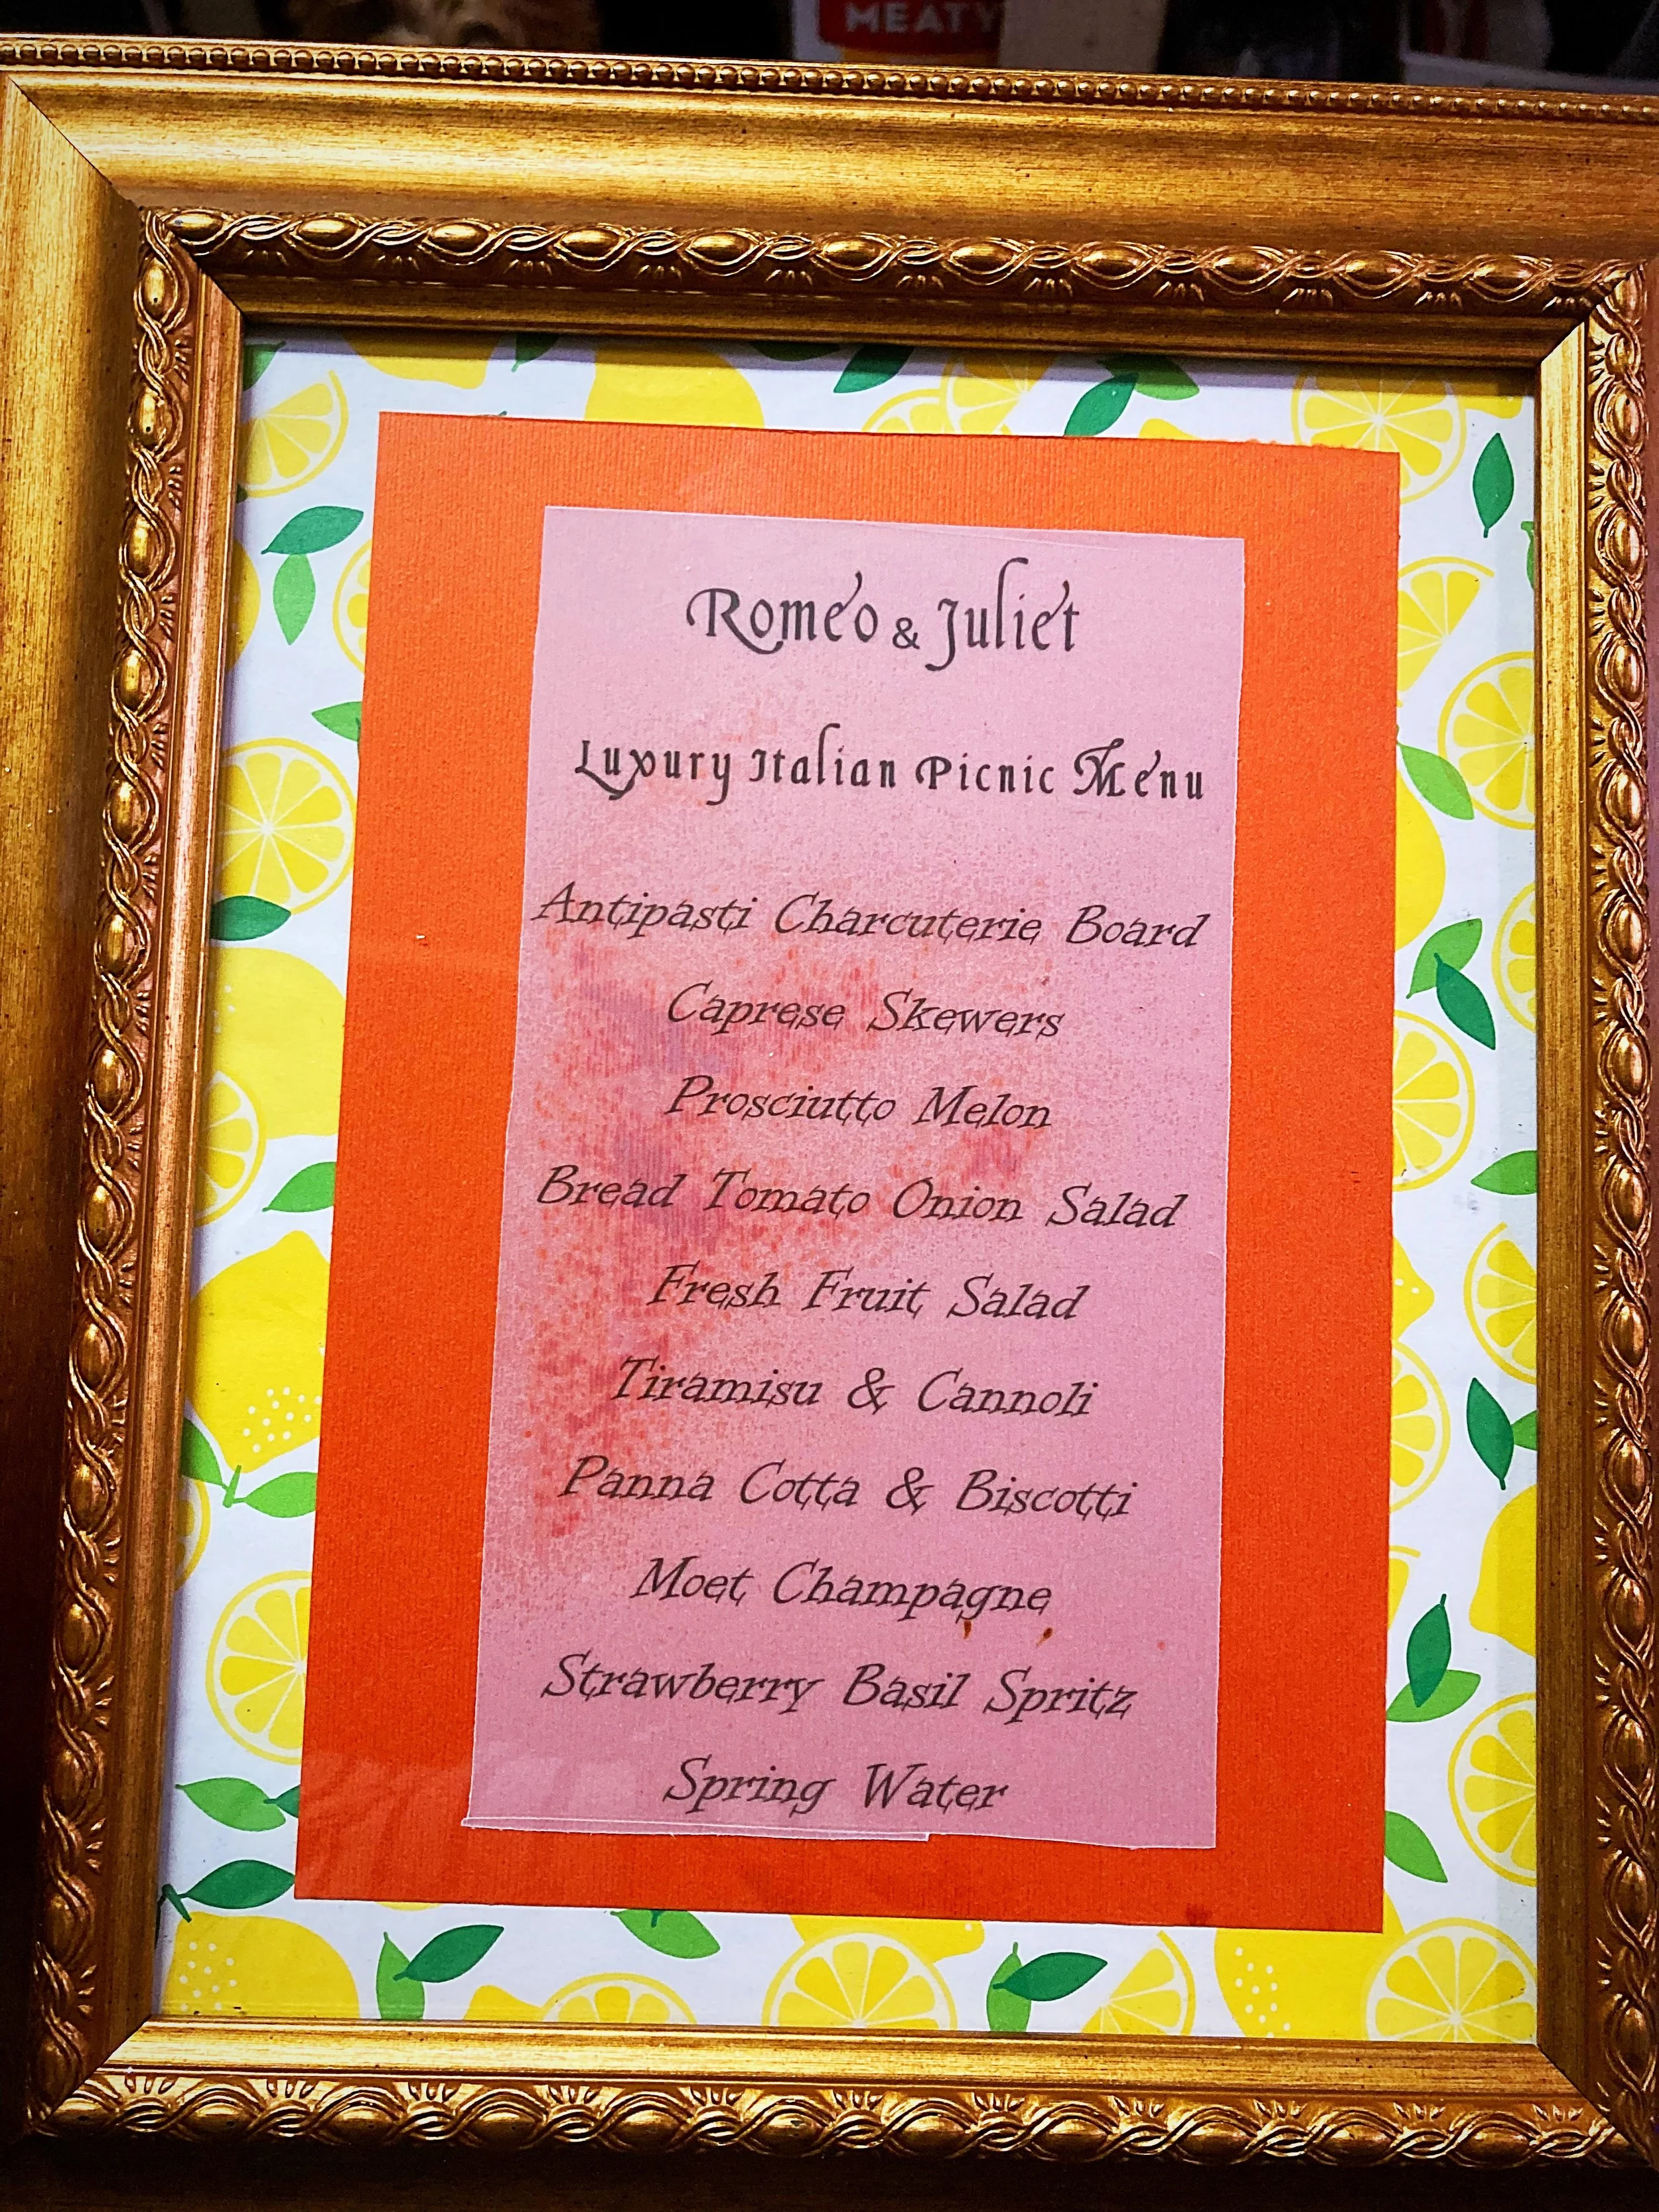 MEATY
Romeo & Juliet
Luxury Italian Picnic Menu
Antipasti Charcuterie Board
Caprese Skewers
Prosciutto Melon
Bread Tomato Onion Salad
Fresh Fruit Salad
Tiramisu & Cannoli
Panna Cotta & Biscotti
Moet Champagne
Strawberry Basil Spritz
Spring Water